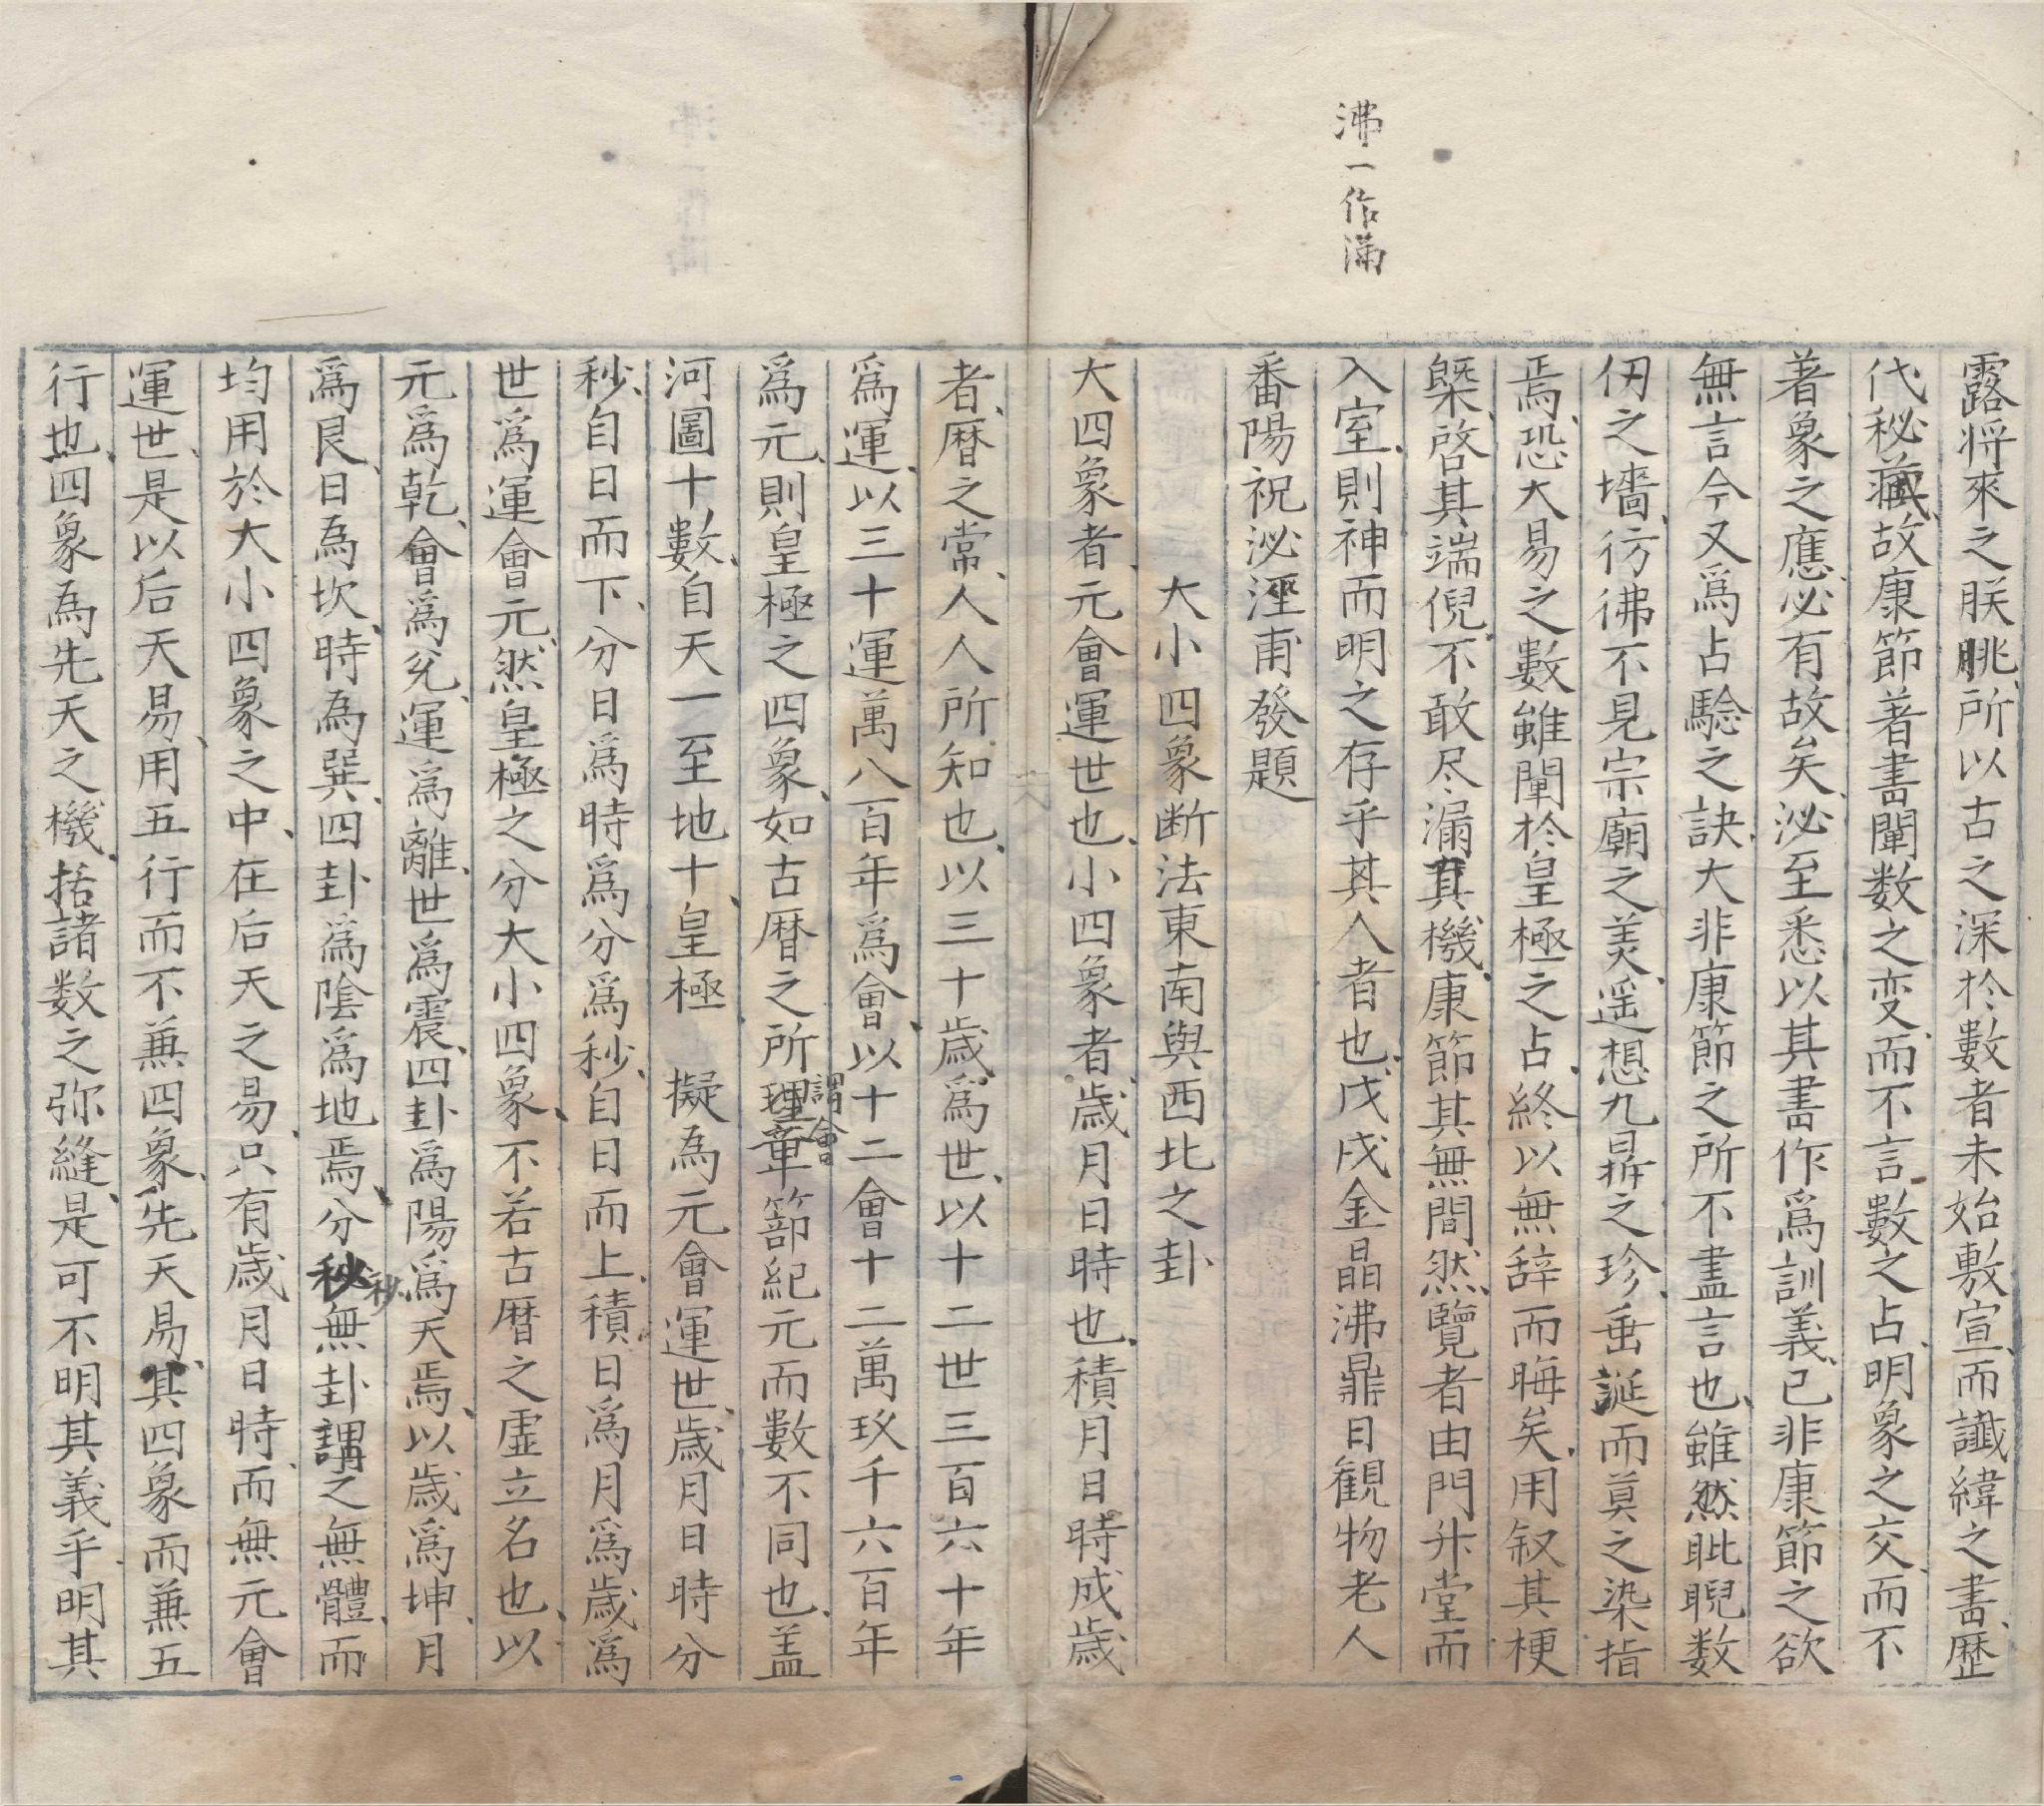 沸一作滿
露將來之朕眺所以古之深於數者未始敷宣而讖緯之書歷
代秘藏故康節著書闡数之变而不言數之占明象之交而不
著象之應必有故矣泌至悉以其書作爲訓義已非康節之欲
無言今又爲占驗之訣大非康節之所不盡言也雖然眦睨数
仞之墻彷彿不見宗廟之美遥想九鼎之珍垂誕而莫之染指
焉恐大易之數雖闡於皇極之占終以無辞而晦矣用叙其梗
槩啓其端倪不敢尽漏其機康節其無間然覽者由門升堂而
入室則神而明之存乎其人者也戊戌金晶沸鼎日観物老人
番陽祝泌涇甫發題
大小四象断法東南與西北之卦
大四象者元會運世也小四象者歲月日時也積月日時成歲
者暦之常人人所知也以三十歲爲世以十二世三百六十年
爲運以三十運萬八百年爲會以十二會十二萬玖千六百年
爲元則皇極之四象如古暦之所謂會理章蔀紀元而數不同也盖
河圖十數自天一至地十皇極 擬為元會運世歲月日時分
秒自日而下分日爲時爲分爲秒自日而上積日爲月爲歲爲
世爲運會元然皇極之分大小四象不若古暦之虛立名也以
元爲乾會爲兌運爲離世爲震四卦爲陽爲天焉以歲爲坤月
爲艮日為坎時為巽四卦爲陰爲地焉分秒秒無卦謂之無體而
均用於大小四象之中在后天之易只有歲月日時而無元會
運世是以后天易用五行而不兼四象先天易其四象而兼五
行也四象為先天之機括諸数之弥縫是可不明其義乎明其